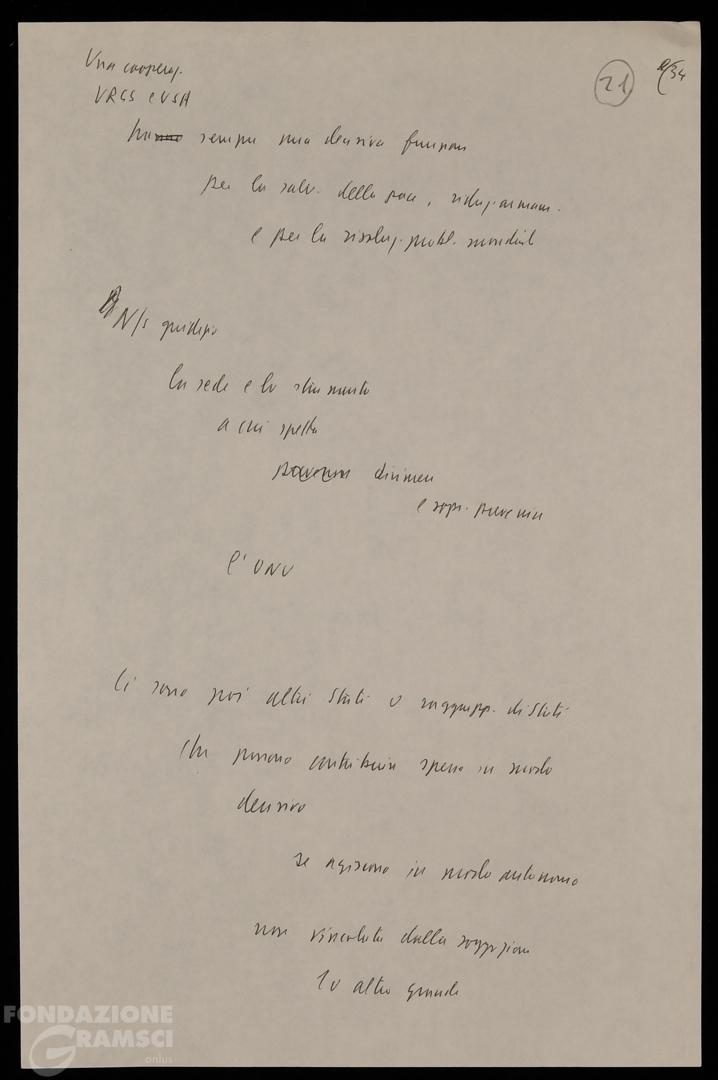 21
Una cooperaz.
URSS e USA
ha sempre una decisiva funzione
per la salv. della pace, riduz. armam.
e per la risoluz. probl. mondiali
N/s giudizio
la sede e lo strumento
a cui spetta
dirimere
e sopr. prevenire
è l'ONU
Ci sono poi altri Stati o raggrupp. di Stati
che possono contribuire spesso in modo
decisivo
se agiscono in modo autonomo
non vincolato dalla soggezione
altro grande
FONDAZIONE
GRAMSCI
onlus